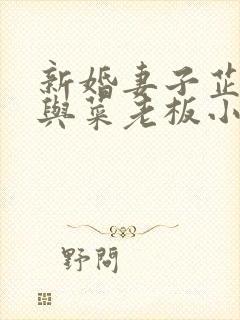 新婚妻子芷
與菜老板小
野問